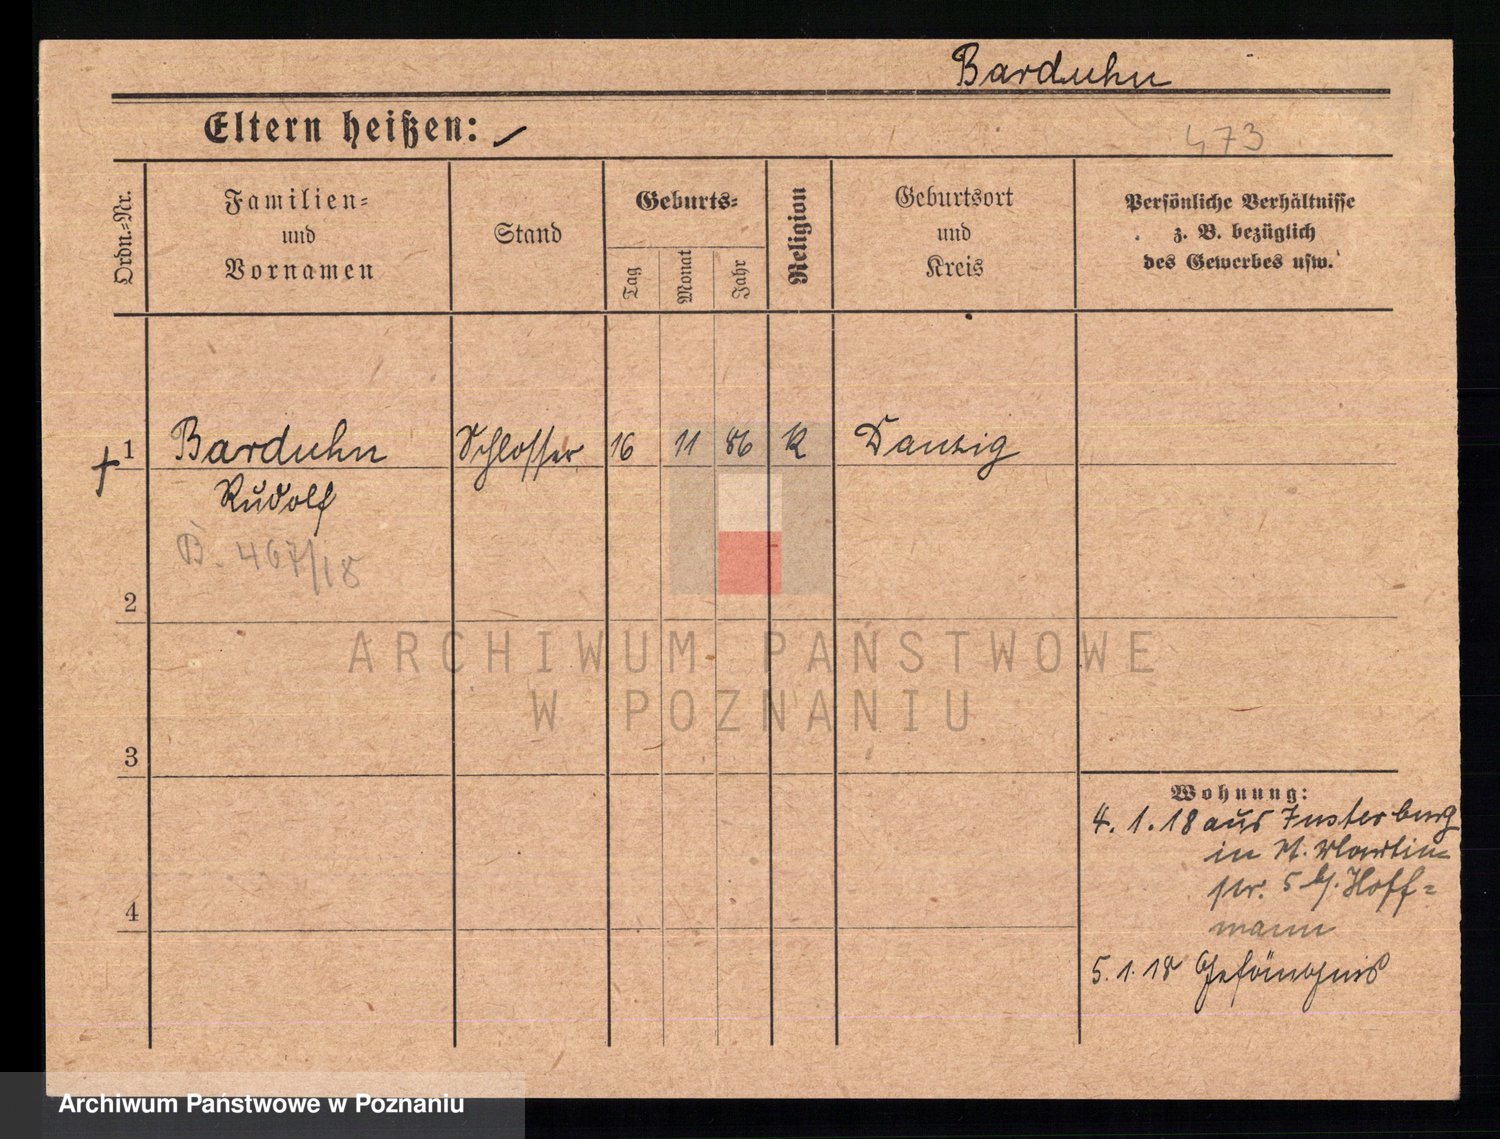 Barduhn
Eltern heißen:
473
Ordn.-Nr.
Familien-
und
Vornamen
Stand
Geburts-
Tag
Monat
Jahr
Religion
Geburtsort
und
Kreis
Persönliche Verhältnisse
z. B. bezüglich
des Gewerbes usw.
1 Barduhn Schlosser 16 11 86 K Danzig
Rudolf
B. 467/18
2
ARCHIWUM PAŃSTWOWE
W POZNANIU
3
Wohnung:
4. 1. 18 aus Insterburg
in St. Martin
str. 5 b/. Hoff-
mann
4
5. 1. 18 Gefängnis
Archiwum Państwowe w Poznaniu